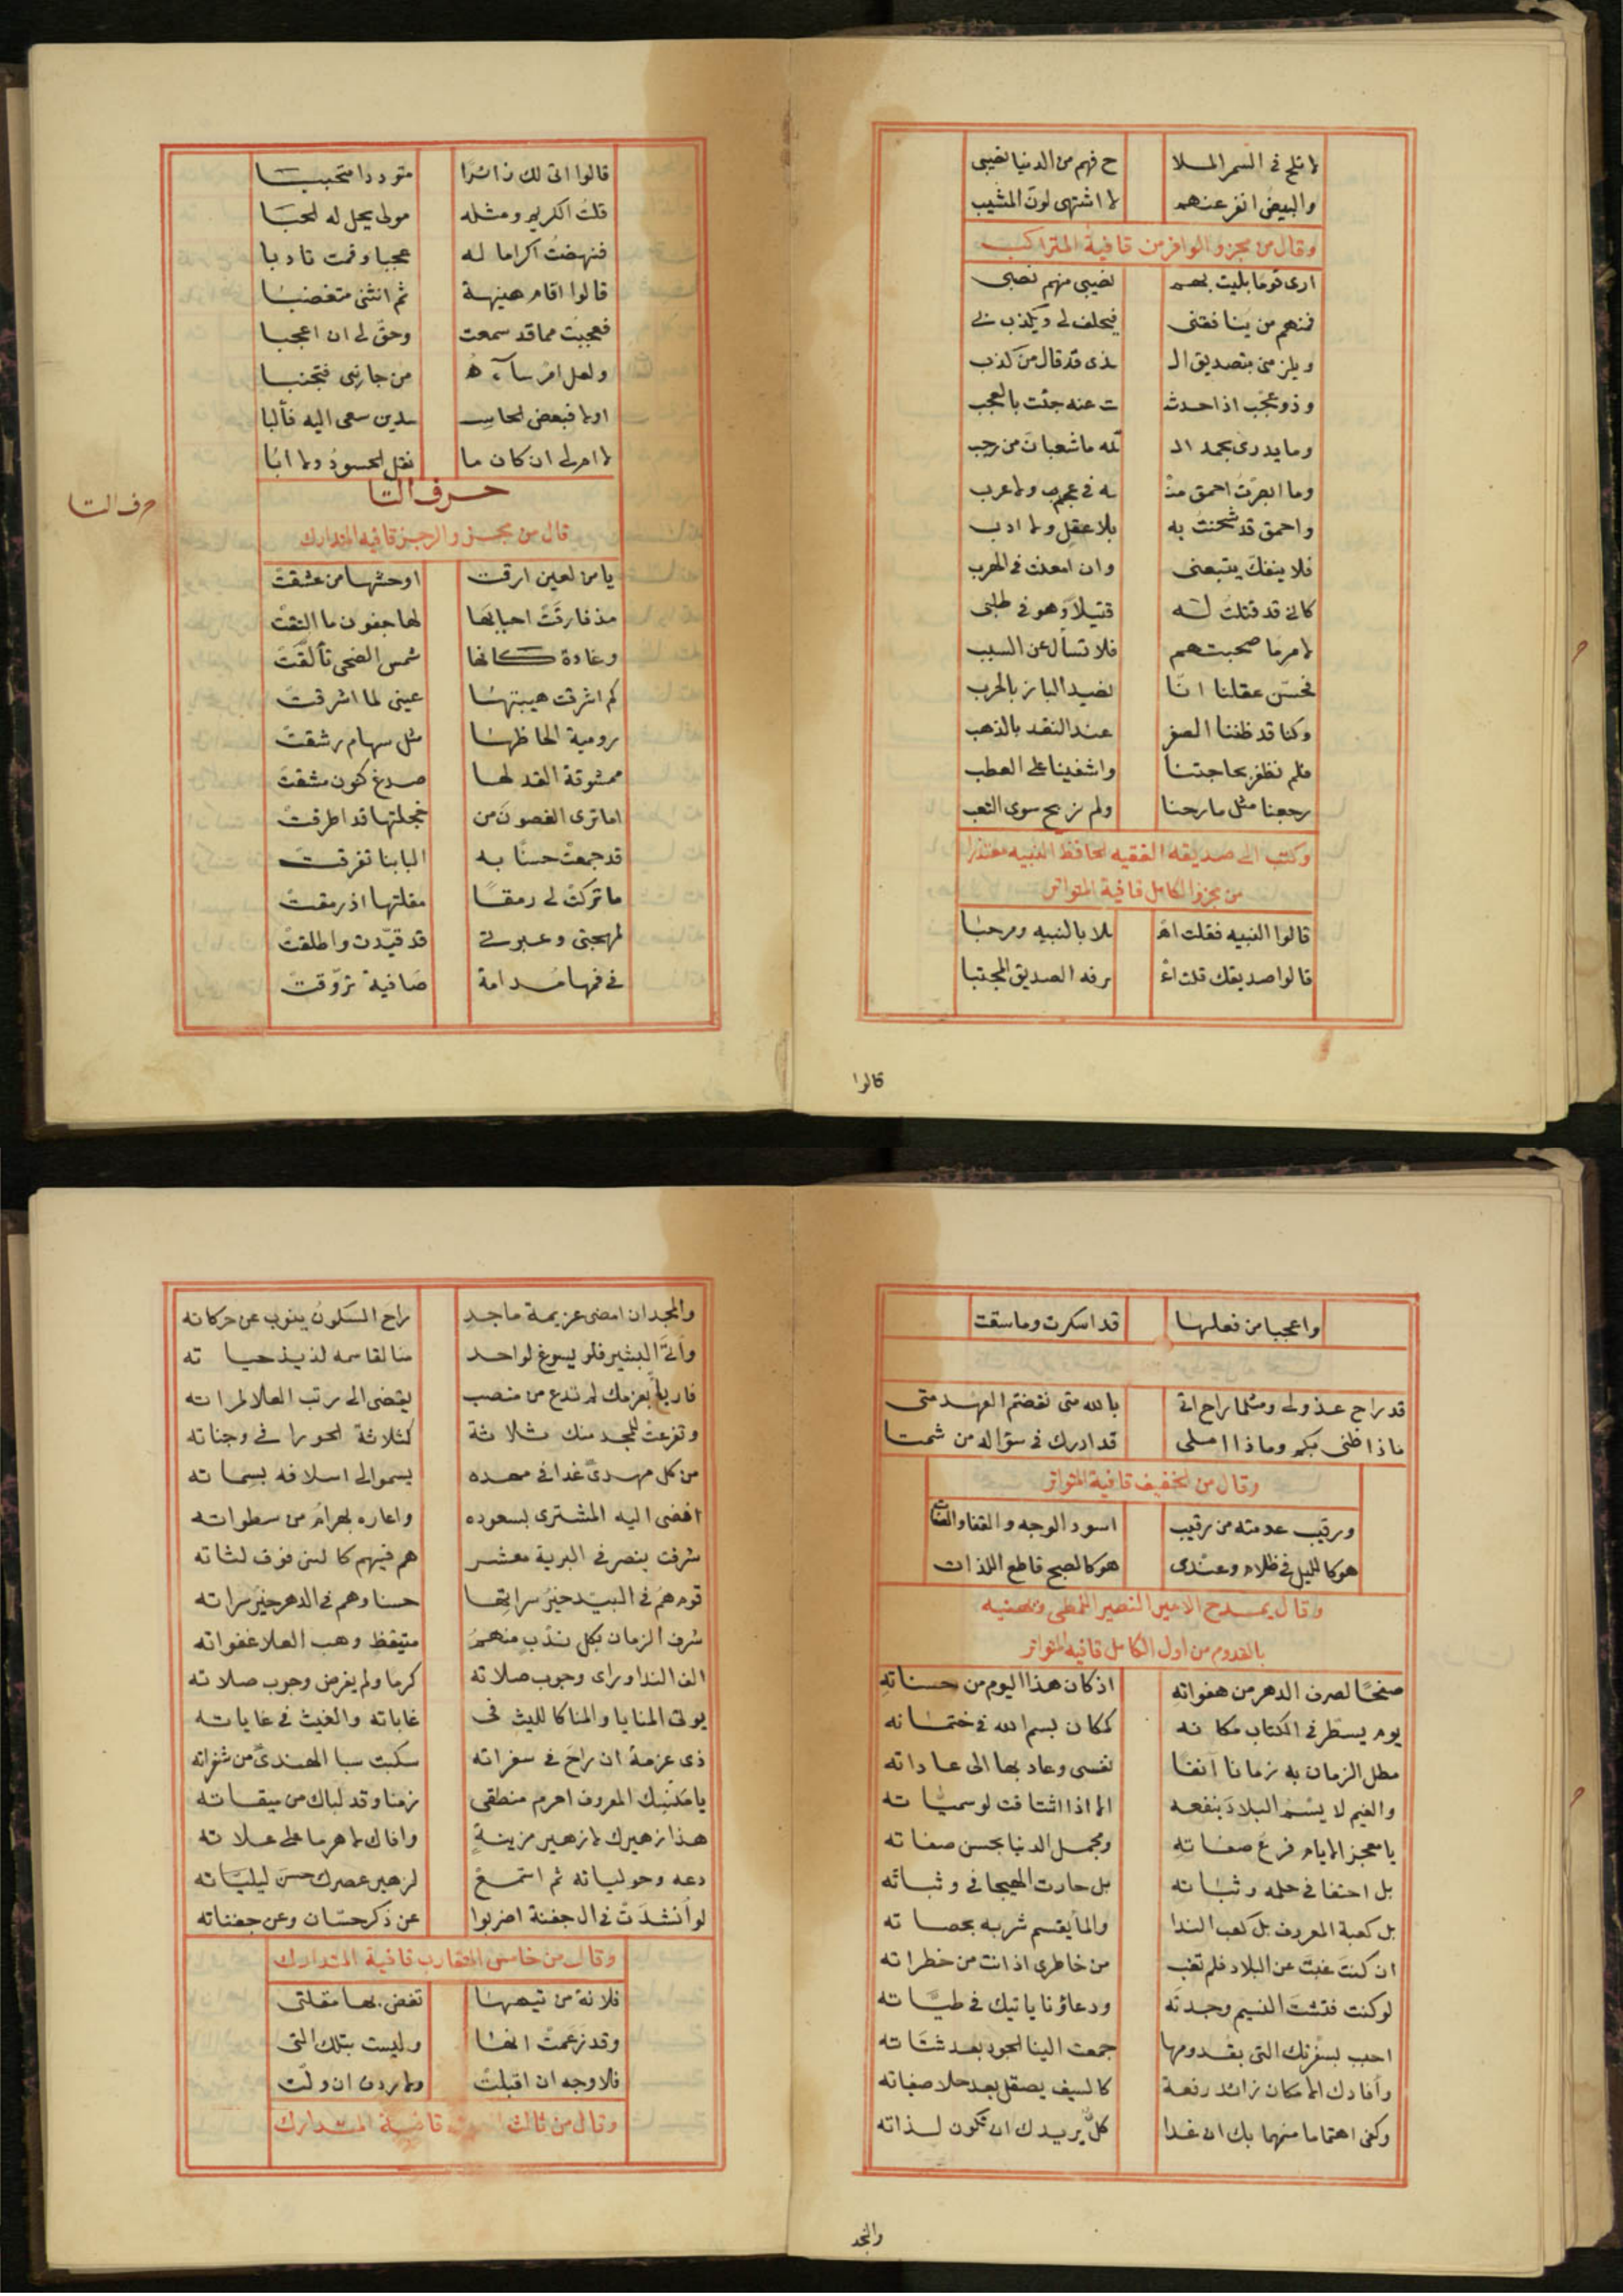 لا تلح في السمر الملا ح فهم من الدنيا نصيبي
والبيض انفر عنهم لا اشتهى لون المشيب
وقال من مجزو الوافر من قافية المتراكب
ارى قوما بليت بهم نصيبي منهم نصبى
فمنهم من ينافقنى فيحلف لى ويكذب لى
ويلزمنى بتصديق الـ ـذى قد قال من كذب
وذو عجب اذا حدث ت عنه جئت بالعجب
وما يدرى بحمد الـ لله ما شعبان من رجب
وما ابصرت احمق منـ ـه فى عجم ولا عرب
واحمق قد شحنت به بلا عقل ولا ادب
فلا ينفك يتبعنى وان امعنت فى الهرب
كانى قد قتلت له قتيلا وهو فى طلبى
لامر ما صحبتهم فلا تسأل عن السبب
فحسن عقلنا انّا نصيد الباز بالخرب
وكنا قد ظننا الصفر عند النقد بالذهب
فلم نظفر بحاجتنا واشفينا على العطب
رجعنا مثل ما رحنا ولم نربح سوى التعب
وكتب الى صديقه الفقيه الحافظ النبيه معتذرا
من مجزو الكامل قافية المتواتر
قالوا النبيه فقلت اهـ ـلا بالنبيه ومرحبا
قالوا صديقك قلت اعـ ـرفه الصديق المجتبا
قالوا
قالوا اتى لك زائرا متوددا متحببا
قلت الكريم ومثله مولى يحل له الحبا
فنهضت اكراما له عجبا وقمت تادبا
قالوا اقام هنيهة ثم انثنى متغضبا
فعجبت مما قد سمعت وحق لى ان اعجبا
ولعل امرا ساءه من جانبى فتجنبا
اولا فبعض الحاسـ ـدين سعى اليه فألبا
لا ام لى ان كان ما نقل الحسود ولا ابا
حرف التا
حرف التا
قال من مجزو الرجز قافيه المتدارك
يا من لعين ارقت اوحشها من عشقت
مذ فارقت احبابها لها جفون ما التقت
وغادة كانها شمس الضحى تألقت
كم اشرقت هيبتها عينى لما اشرقت
رومية الحاظها مثل سهام رشقت
ممشوقة القد لها صدغ كنون مشقت
اما ترى الغصون من خجلتها قد اطرقت
قد جمعت حسنا به البابنا تفرقت
ما تركت لى رمقا مقلتها اذ رمقت
لمهجتى وعبرتى قد قيدت واطلقت
فى فمها مدامة صافية تروقت
واعجبا من فعلها قد اسكرت وما سقت
قد راح عذولى ومثلما راح اتى بالله متى نقضتم العهد متى
ماذا ظنى بكم وماذا املى قد ادرك فى سؤاله من شمتا
وقال من الخفيف قافية المتواتر
ورقيب عدمته من رقيب اسود الوجه والقفا والصفات
هو كالليل فى ظلام وعندى هو كالصبح قاطع اللذات
وقال يمدح الامير النصير اللمطى ويهنيه
بالقدوم من اول الكامل قافيه المتواتر
صفحا لصرف الدهر من هفواته اذ كان هذا اليوم من حسناته
يوم يسطر فى الكتاب مكانه كمكان بسم الله فى ختماته
مطل الزمان به زمانا آنفا نفسى وعاد بها الى عاداته
والغيم لا يسم البلاد بنفعه الا اذا اشتاقت لوسمياته
يا معجز الايام فرع صفاته ومجمل الدنيا بحسن صفاته
بل احنفا فى حلمه وثباته بل حارث الهيجا فى وثباته
بل كعبة المعروف بل كعب الندا والما يقسم شربه بحصاته
ان كنت غبت عن البلاد فلم تغب من خاطرى اذ انت من خطراته
لو كنت فتشت النسيم وجدته ودعاؤنا ياتيك فى طياته
احبب بسفرتك التى بقدومها جمعت الينا الجود بعد شتاته
وأفادك الامكان زائد رفعة كالسيف يصقل بعد حلا صفاته
وكفى اهتماما منهما بك ان غدا كل يريدك ان تكون لذاته
والمجد
والمجد ان امضى عزيمة ماجد راح السكون ينوب عن حركاته
وأتى البشير فلو يسوغ لواحد منا لقاسمه لذيذ حياته
فاربا بعزمك لم تدع من منصب يفضى الى رتب العلا لم اته
وتفرعت للمجد منك ثلاثة كثلاثة الجورا فى وجناته
من كل مهدى غدا فى مهده يسمو الى اسلافه بسماته
افضى اليه المشترى بسعوده واعاره بهرام من سطواته
شرفت بنصر فى البرية معشر هم فيهم كالسن فوق لثاته
قوم هم فى البيد خير سراتها حسنا وهم فى الدهر خير سراته
شرف الزمان بكل ندب منهم متيقظ وهب العلا غفواته
الف الندا وراى وجوب صلاته كرما ولم يفرض وجوب صلاته
يولى المنايا والمنا كالليث فى غاباته والغيث فى غاياته
ذى عزمة ان راح فى سفراته سكبت سبا الهندى من شفراته
يا مكنبك المعروف احرم منطقى زمنا وقد لباك من ميقاته
هذا زهيرك لا زهير مزينة وافاك لا هرما على علاته
دعه وحولياته ثم استمع لزهير عصرك حسن ليلياته
لو أنشدت فى ال جفنة اضربوا عن ذكر حسان وعن جفناته
وقال من خامس المتقارب قافية المتدارك
فلانة من تيهها تغض بها مقلتى
وقد زعمت انها وليست بتلك التى
فلا وجه ان اقبلت ولا ردف ان ولت
وقال من ثالث قافية المتدارك